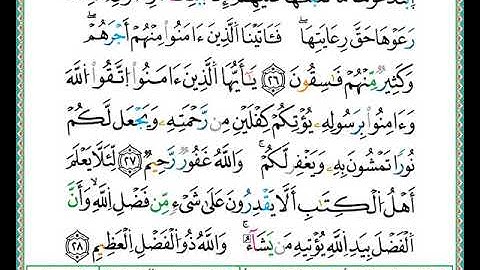 رَعَوْهَا حَقَّ رِعَايَتِهَا ۖ فَـَٔاتَيْنَا ٱلَّذِينَ ءَامَنُوا۟ مِنْهُمُۥٓ أَجْرَهُمْ ۖ
وَكَثِيرٌ مِّنْهُمْ فَٰسِقُونَ ٢٦ يَٰٓأَيُّهَا ٱلَّذِينَ ءَامَنُوا۟ ٱتَّقُوا۟ ٱللَّهَ
وَءَامِنُوا۟ بِرَسُولِهِۦ يُؤْتِكُمْ كِفْلَيْنِ مِن رَّحْمَتِهِۦ وَيَجْعَل لَّكُمْ
نُورًا تَمْشُونَ بِهِۦ وَيَغْفِرْ لَكُمْ ۚ وَٱللَّهُ غَفُورٌ رَّحِيمٌ ٢٧ لِّئَلَّا يَعْلَمَ
أَهْلُ ٱلْكِتَٰبِ أَلَّا يَقْدِرُونَ عَلَىٰ شَىْءٍ مِّن فَضْلِ ٱللَّهِ ۙ وَأَنَّ
ٱلْفَضْلَ بِيَدِ ٱللَّهِ يُؤْتِيهِ مَن يَشَآءُ ۚ وَٱللَّهُ ذُو ٱلْفَضْلِ ٱلْعَظِيمِ ٢٨